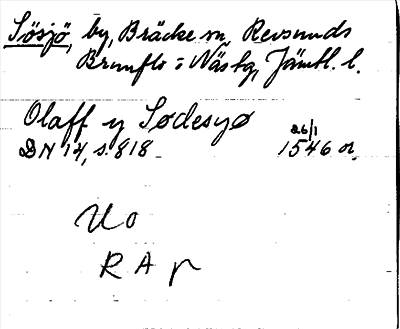 Sösjö, by, Bräcke sn, Revsunds
Brunflo o Näs tg, Jämtl. l.
Olaff y Sødesyø
26/1
DN 14, s. 818 1546 or.
Uo
R A p